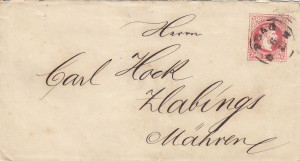 Herrn
Carl Hock
Zlabings
Mähren